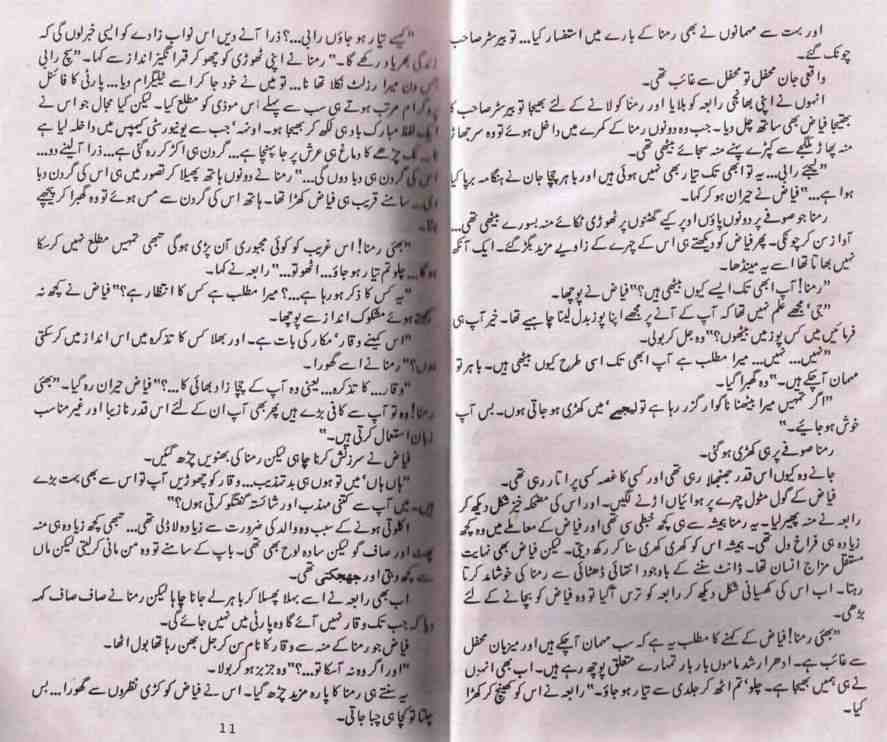 اور بہت سے مہمانوں نے بھی رمنا کے بارے میں استفسار کیا... تو بیرسٹر صاحب
چونک گئے۔
واقعی جان محفل تو محفل سے غائب تھی۔
انہوں نے اپنی بھانجی رابعہ کو بلایا اور رمنا کو لانے کے لئے بھیجا تو بیرسٹر صاحب کا
بھتیجا فیاض بھی ساتھ چل دیا۔ جب وہ دونوں رمنا کے کمرے میں داخل ہوئے تو وہ سر جھاڑ
منہ پھاڑ ملگجے سے کپڑے پہنے منہ سجائے بیٹھی تھی۔
"لیجئے رابی... یہ تو ابھی تک تیار بھی نہیں ہوئی ہیں اور باہر چچا جان نے ہنگامہ برپا کیا
ہوا ہے..." فیاض نے حیران ہو کر کہا۔
رمنا جو صوفے پر دونوں پاؤں اوپر کیے گھٹنوں پر ٹھوڑی ٹکائے منہ بسورے بیٹھی تھی...
آواز سن کر چونکی۔ پھر فیاض کو دیکھتے ہی اس کے چہرے کے زاویے مزید بگڑ گئے۔ ایک آنکھ
نہیں بھاتا تھا اسے یہ مینڈھا۔
"رمنا! آپ ابھی تک ایسے کیوں بیٹھی ہیں؟" فیاض نے پوچھا۔
"جی' مجھے علم نہیں تھا کہ آپ کے آنے پر مجھے اپنا پوز بدل لینا چاہیے تھا۔ خیر آپ ہی
فرمائیں میں کس پوز میں بیٹھوں؟" وہ جل کر بولی۔
"نہیں... نہیں... میرا مطلب ہے آپ ابھی تک اسی طرح کیوں بیٹھی ہیں۔ باہر تو
مہمان آ چکے ہیں۔" وہ گھبرا گیا۔
"اگر تمہیں میرا بیٹھنا ناگوار گزر رہا ہے تو لیجیے' میں کھڑی ہو جاتی ہوں۔ بس آپ
خوش ہو جائیے۔"
رمنا صوفے پر ہی کھڑی ہو گئی۔
جانے وہ کیوں اس قدر جھنجلا رہی تھی اور کسی کا غصہ کسی پر اتار رہی تھی۔
فیاض کے گول مٹول چہرے پر ہوائیاں اڑنے لگیں۔ اور اس کی مضحکہ خیز شکل دیکھ کر
رابعہ نے منہ پھیر لیا۔ یہ رمنا ہمیشہ سے ہی کچھ خبطی سی تھی اور فیاض کے معاملے میں وہ کچھ
زیادہ ہی فراخ دل تھی۔ ہمیشہ اس کو کھری کھری سنا کر رکھ دیتی۔ لیکن فیاض بھی نہایت
مستقل مزاج انسان تھا۔ ڈانٹ سننے کے باوجود انتہائی ڈھٹائی سے رمنا کی خوشامد کرتا
رہتا۔ اب اس کی کھسیانی شکل دیکھ کر رابعہ کو ترس آ گیا تو وہ فیاض کو بچانے کے لئے
بڑھی۔
"بھئی رمنا! فیاض کے کہنے کا مطلب یہ ہے کہ سب مہمان آ چکے ہیں اور میزبان محفل
سے غائب ہے۔ ادھر ارشد ماموں بار بار تمہارے متعلق پوچھ رہے ہیں۔ اب بھی انہوں
نے ہی ہمیں بھیجا ہے۔ چلو' تم اٹھ کر جلدی سے تیار ہو جاؤ۔" رابعہ نے اس کو کھینچ کر کھڑا
کیا۔
"کیسے تیار ہو جاؤں رابی...؟ ذرا آنے دیں اس نواب زادے کو ایسی خبر لوں گی کہ
زندگی بھر یاد رکھے گا۔" رمنا نے اپنی ٹھوڑی کو چھو کر قہر انگیز انداز سے کہا۔ "سچ رابی
جس دن میرا رزلٹ نکلا تھا نا... تو میں نے خود جا کر اسے ٹیلیگرام دیا... پارٹی کا فائنل
پروگرام مرتب ہوتے ہی سب سے پہلے اس موذی کو مطلع کیا۔ لیکن کیا مجال جو اس نے
ایک لفظ مبارک باد ہی لکھ کر بھیجا ہو۔ اونہہ' جب سے یونیورسٹی کیمپس میں داخلہ لیا ہے
نا... نک چڑھے کا دماغ ہی عرش پر جا پہنچا ہے... گردن ہی اکڑ کر رہ گئی ہے... ذرا آ لینے دو...
اس کی گردن ہی دبا دوں گی..." رمنا نے دونوں ہاتھ پھیلا کر تصور میں ہی اس کی گردن دبا
لی... سامنے قریب ہی فیاض کھڑا تھا۔ ہاتھ اس کی گردن سے مس ہوئے تو وہ گھبرا کر پیچھے
ہٹا۔
"بھئی رمنا! اس غریب کو کوئی مجبوری آن پڑی ہوگی تبھی تمہیں مطلع نہیں کر سکا
ہو گا... چلو تم تیار ہو جاؤ... اٹھو تو..." رابعہ نے کہا۔
"یہ کس کا ذکر ہو رہا ہے...؟ میرا مطلب ہے کس کا انتظار ہے؟" فیاض نے کچھ نہ
سمجھتے ہوئے مشکوک انداز سے پوچھا۔
"اس کمینے وقار' مکار کی بات ہے۔ اور بھلا کس کا تذکرہ میں اس انداز میں کر سکتی
ہوں؟" رمنا نے اسے گھورا۔
"وقار... کا تذکرہ... یعنی وہ آپ کے چچا زاد بھائی کا...؟" فیاض حیران رہ گیا۔ "بھئی
رمنا! وہ تو آپ سے کافی بڑے ہیں پھر بھی آپ ان کے لئے اس قدر نازیبا اور غیر مناسب
زبان استعمال کرتی ہیں۔"
فیاض نے سرزنش کرنا چاہی لیکن رمنا کی بھنویں چڑھ گئیں۔
"ہاں ہاں' میں تو ہوں ہی بد تہذیب... وقار کو چھوڑیں آپ تو اس سے بھی بہت بڑے
ہیں۔ میں آپ سے کتنی مہذب اور شائستہ گفتگو کرتی ہوں؟"
اکلوتی ہونے کے سبب وہ والد کی ضرورت سے زیادہ لاڈلی تھی... تبھی کچھ زیادہ ہی منہ
پھٹ اور صاف گو لیکن سادہ لوح بھی تھی۔ باپ کے سامنے تو وہ من مانی کر لیتی لیکن ماں
سے کچھ دبتی اور جھجکتی تھی۔
اب بھی رابعہ نے اسے بہلا پھسلا کر باہر لے جانا چاہا لیکن رمنا نے صاف صاف کہہ
دیا کہ جب تک وقار نہیں آئے گا وہ پارٹی میں نہیں جائے گی۔
فیاض جو رمنا کے منہ سے وقار کا نام سن کر جل بھن رہا تھا بول اٹھا۔
"اور اگر وہ نہ آ سکا تو...؟" وہ جز بز ہو کر بولا۔
یہ سنتے ہی رمنا کا پارہ مزید چڑھ گیا۔ اس نے فیاض کو کڑی نظروں سے گھورا... بس
چلتا تو کچا ہی چبا جاتی۔
11